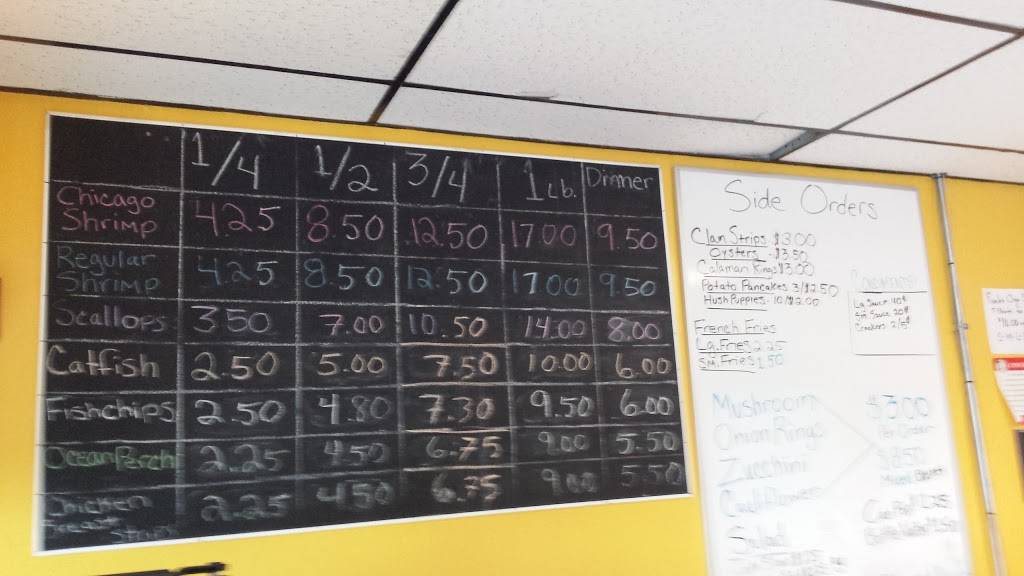 1/4 1/2 3/4 1 Lb. Dinner
Chicago Shrimp 425 8.50 12.50 1700 9.50
Regular Shrimp 425 8.50 12.50 1700 9.50
Scallops 350 7.00 10.50 14.00 8.00
Catfish 2.50 5.00 7.50 10.00 6.00
Fishchips 2.50 4.80 7.30 9.50 6.00
Ocean Perch 2.25 450 6.75 9.00 5.50
Chicken Breast Strips 2.25 450 6.75 9.00 5.50
Side Orders
Clan Strips $3.00
Oysters $3.50
Calamari Rings $3.00
Potato Pancakes 3/$2.50
Hush Puppies 10/$2.00
French Fries
La. Fries 2.25
Sm. Fries 1.50
La. Sauce 40¢
Sm. Sauce 20¢
Crackers
Mushroom $3.00
Onion Rings Per Order
Zucchini
Cauliflower
Salad